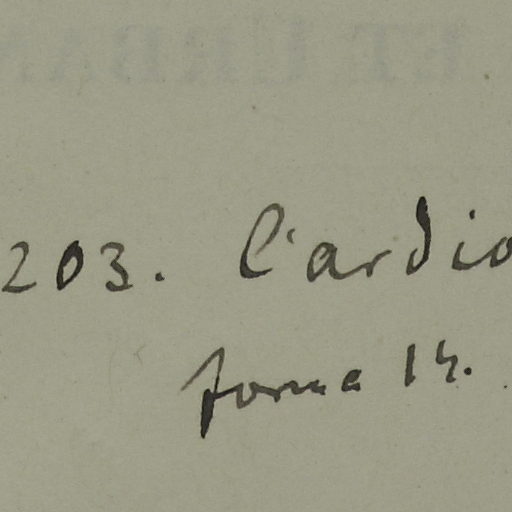 203. Cardio
forma 14.